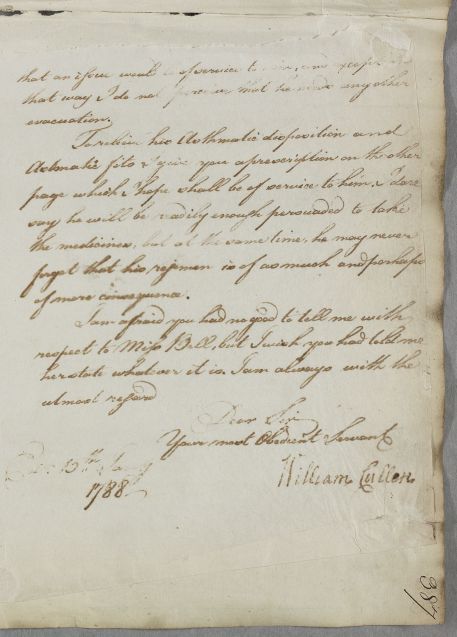 that an issue would be of service to him, and except in
that way I do not perceive that he needs any other
evacuation.
To relieve his Asthmatic disposition and
Astmatic fits I give you a prescription on the other
page which I hope shall be of service to him. I dare
say he will be readily enough persuaded to take
the medicines, but at the same time, he may never
forget that his regimen is of as much and perhaps
of more consequence.
I am afraid you had no good to tell me with
respect to Miss Bell, but I wish you had told me
her state whatever it is. I am always with the
utmost regard
Dear Sir
Your most Obedient Servant
William Cullen
1788
387